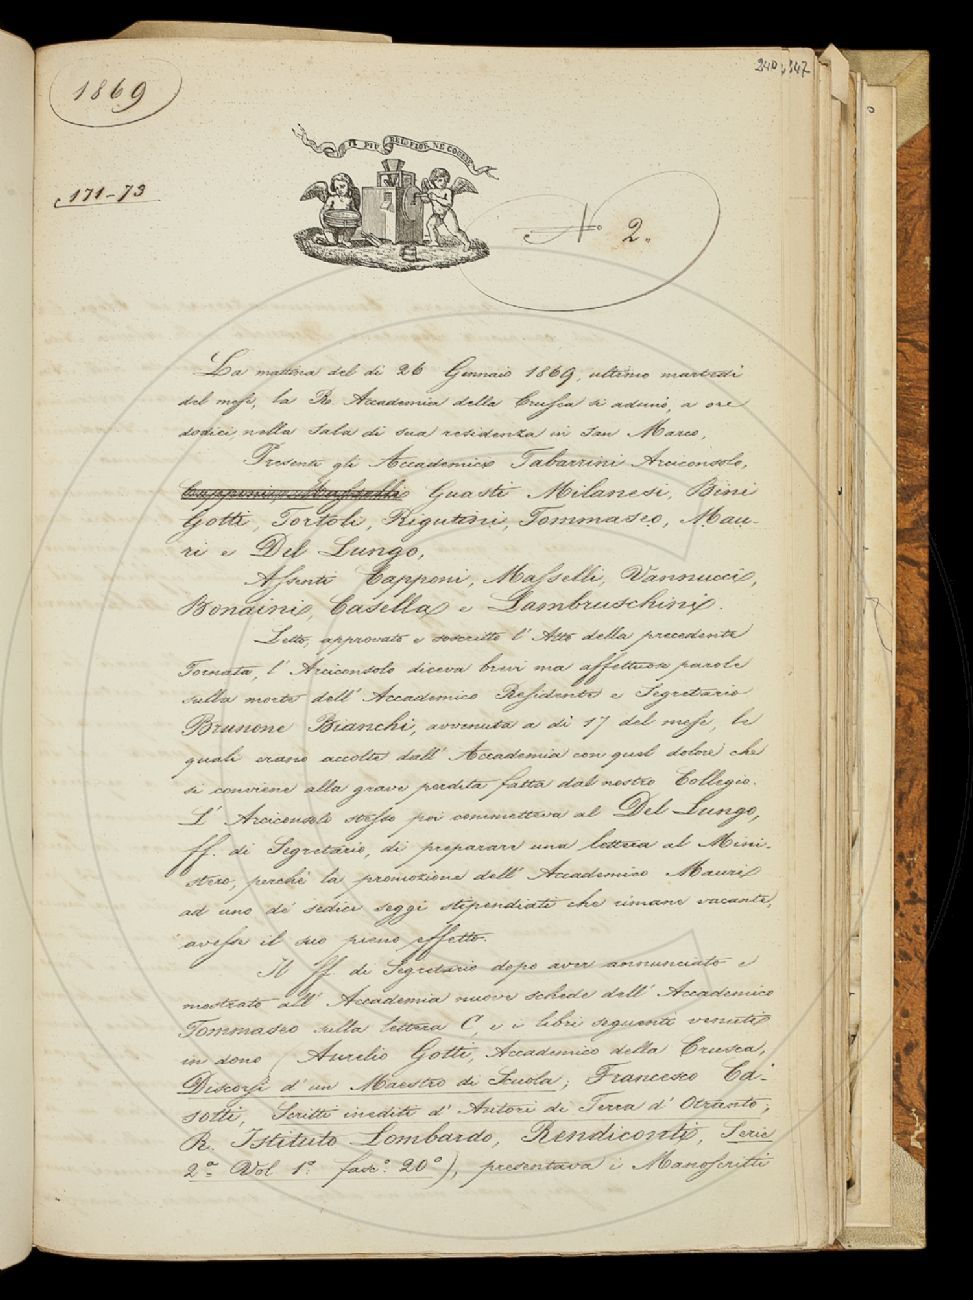 1869
240, 347
IL PIÙ BEL FIOR NE COGLIE
171-73
N.° 2.
La mattina del dì 26 Gennaio 1869, ultimo martedì
del mese, la R. Accademia della Crusca si adunò, a ore
dodici, nella Sala di sua residenza in San Marco,
Presenti gli Accademici Tabarrini Arciconsolo,
Guasti Milanesi, Bini
Gotti, Tortoli, Rigutini, Tommaseo, Mau-
ri e Del Lungo,
Assenti Capponi, Masselli, Vannucci,
Bonaini, Casella e Lambruschini.
Letto, approvato e soscritto l'Atto della precedente
Tornata, l'Arciconsolo diceva brevi ma affettuose parole
sulla morte dell'Accademico Residente e Segretario
Brunone Bianchi, avvenuta a dì 17 del mese, le
quali erano accolte dall'Accademia con quel dolore che
si conviene alla grave perdita fatta dal nostro Collegio.
L'Arciconsolo stesso poi commetteva al Del Lungo,
ff. di Segretario, di preparare una lettera al Mini-
stero, perchè la promozione dell'Accademico Mauri
ad uno de' sedici seggi stipendiati che rimane vacante,
avesse il suo pieno effetto.
Il ff. di Segretario dopo aver annunciato e
mostrato all'Accademia nuove schede dell'Accademico
Tommaseo sulla lettera C, e i libri seguenti venuti
in dono (Aurelio Gotti, Accademico della Crusca,
Discorsi d'un Maestro di Scuola; Francesco Ca-
sotti, Scritti inediti d'Autori di Terra d'Otranto;
R. Istituto Lombardo, Rendiconti, Serie
2ª Vol 1° fasc.° 20°), presentava i Manoscritti